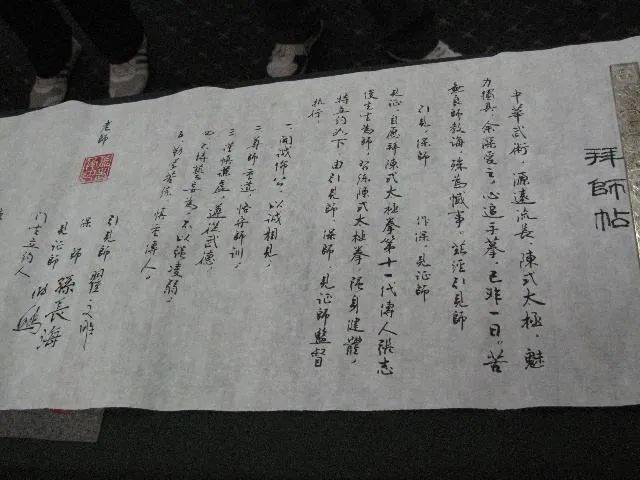 拜師帖
中華武術，源遠流長，陳式太極，魅
力獨具，余深愛之，心追手摹，已非一日，苦
無良師教誨，殊為憾事。兹經引見師
引見，保師 作保，見証師
見証，自愿拜陳式太極拳第十一代傳人張志
俊先生為師，習練陳式太極拳，强身健體，
特立約如下，由引見師、保師、見証師監督
执行。
一、開誠佈公，以誠相見，
二、尊師重道，恪守師训，
三、謹慎謙虚，遵從武德，
四、不得惹是為非，不以强凌弱，
五、勤学苦练，慎重傳人。
老師
引見師
保師
見証師 孫長海
門生立約人